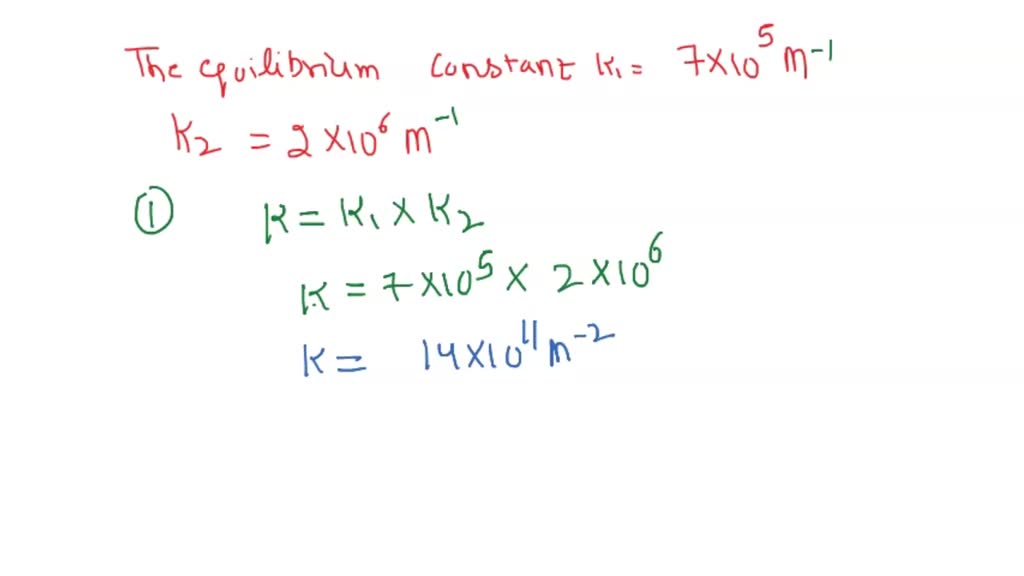 The equilibrium constant K₁ = 7×10⁵ M⁻¹
K₂ = 2×10⁶ M⁻¹
① K = K₁ × K₂
K = 7×10⁵ × 2×10⁶
K = 14×10¹¹ M⁻²